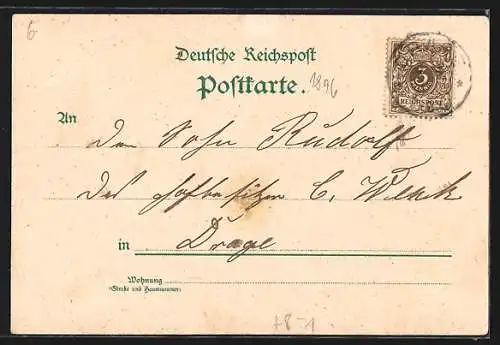 6
Deutsche Reichspost
Postkarte.
1896
3
REICHSPOST
An
den Sohn Rudolf
des Hofbesitzer C.
in Drage
Wohnung
(Straße und Hausnummer)